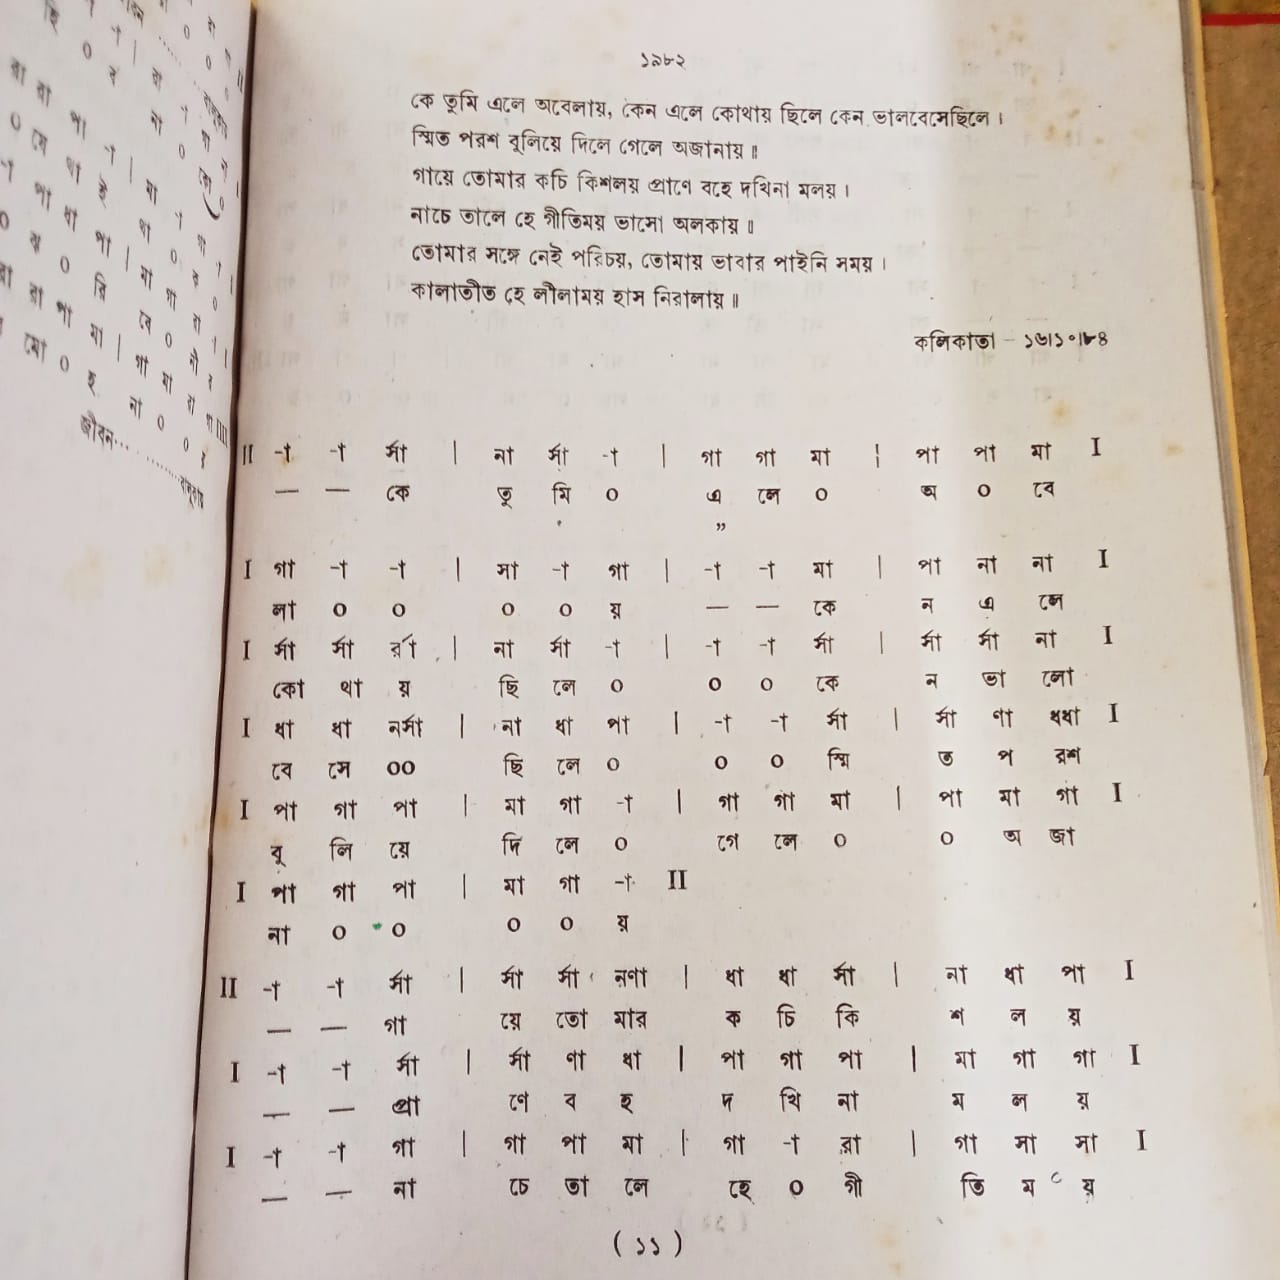 ১৯৮২
কে তুমি এলে অবেলায়, কেন এলে কোথায় ছিলে কেন ভালবেসেছিলে ।
স্মিত পরশ বুলিয়ে দিলে গেলে অজানায় ॥
গায়ে তোমার কচি কিশলয় প্রাণে বহে দখিনা মলয় ।
নাচে তালে হে গীতিময় ভাসো অলকায় ॥
তোমার সঙ্গে নেই পরিচয়, তোমায় ভাবার পাইনি সময় ।
কালাতীত হে লীলাময় হাস নিরালায় ॥
কলিকাতা – ১৬।১০।৮৪
II -া -া র্সা | না র্সা -া | গা গা মা | পা পা মা I
— — কে তু মি ০ এ লে ০ অ ০ বে
”
I গা -া -া | সা -া গা | -া -া মা | পা না না I
লা ০ ০ ০ ০ য় — — কে ন এ লে
I র্সা র্সা র্রা | না র্সা -া | -া -া র্সা | র্সা র্সা না I
কো থা য় ছি লে ০ ০ ০ কে ন ভা লো
I ধা ধা নর্সা | না ধা পা | -া -া র্সা | র্সা ণা ধধা I
বে সে ০০ ছি লে ০ ০ ০ স্মি ত প রশ
I পা গা পা | মা গা -া | গা গা মা | পা মা গা I
বু লি য়ে দি লে ০ গে লে ০ ০ অ জা
I পা গা পা | মা গা -া II
না ০ ০ ০ ০ য়
II -া -া র্সা | র্সা র্সা নণা | ধা ধা র্সা | না ধা পা I
— — গা য়ে তো মার ক চি কি শ ল য়
I -া -া র্সা | র্সা ণা ধা | পা গা পা | মা গা গা I
— — প্রা ণে ব হ দ খি না ম ল য়
I -া -া গা | গা পা মা | গা -া রা | গা সা সা I
— — না চে তা লে হে ০ গী তি ম য়
( ১১ )
জীবন...